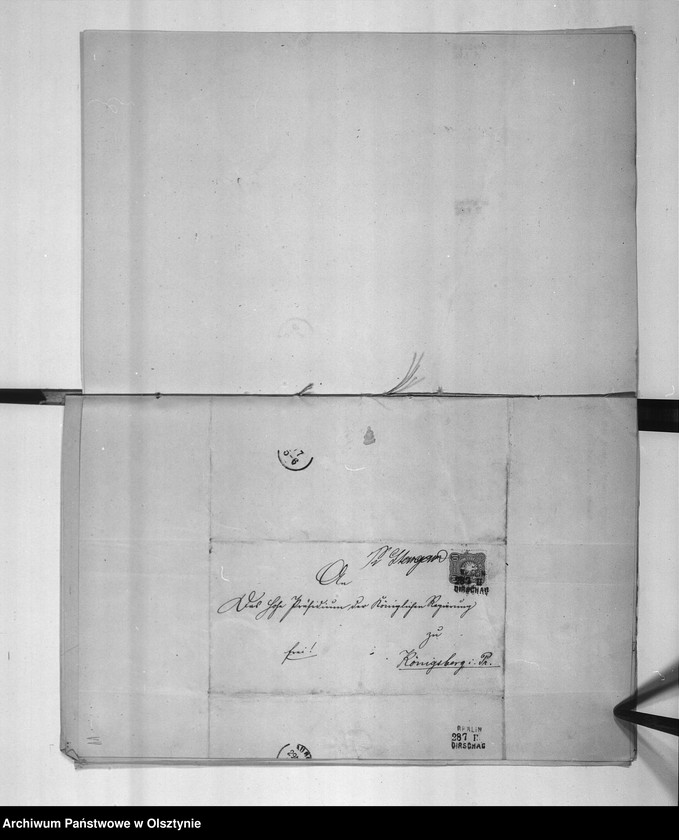 An
Das Hohe Präsidium der Königlichen Regierung
zu
frei!
Königsberg i. Pr.
DIRSCHAU
BERLIN
287 II
DIRSCHAU
Archiwum Państwowe w Olsztynie